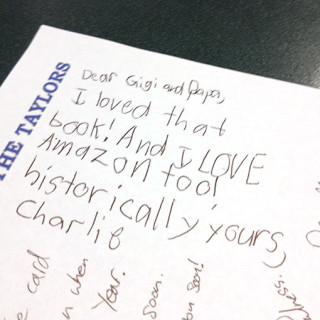 THE TAYLORS
Dear Gigi and Papa,
I loved that
book! And I LOVE
Amazon too!
historically yours,
Charlie
card
when
Year.
soon.
son!